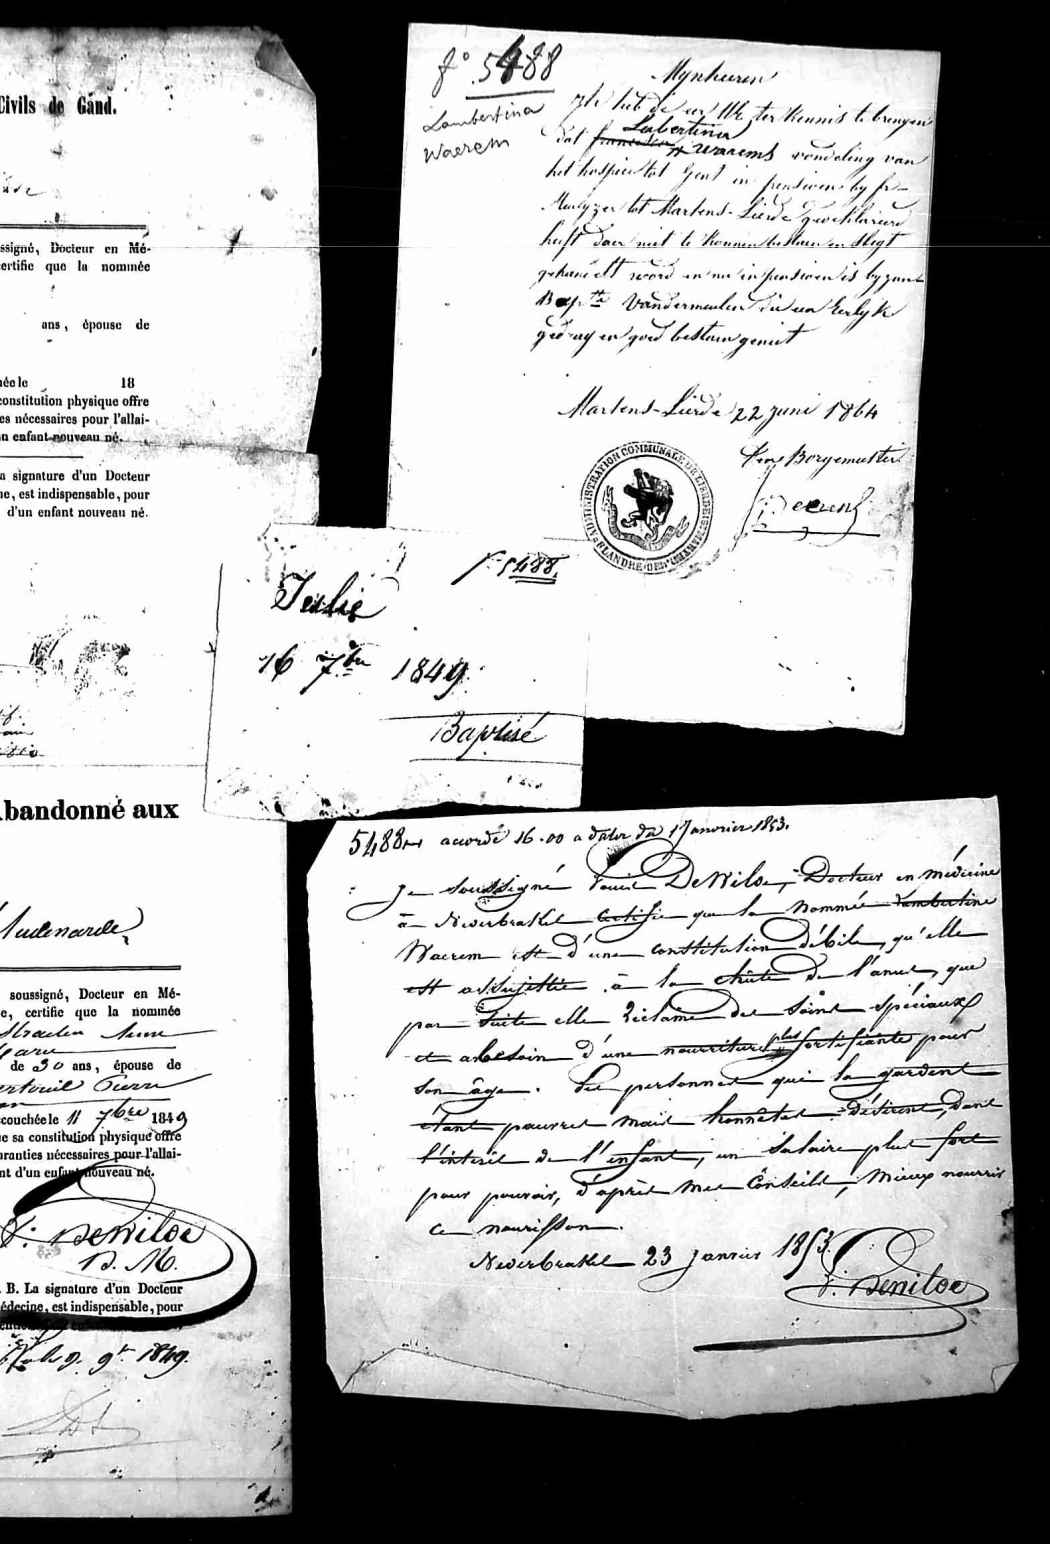 Civils de Gand.
ssigné, Docteur en Mé-
ertifie que la nommée
ans, épouse de
ée le 18
constitution physique offre
es nécessaires pour l'allai-
n enfant nouveau né.
a signature d'un Docteur
ne, est indispensable, pour
d'un enfant nouveau né.
f° 5488
Lambertina
Waerem
Mynheeren
Ik heb de eer UE ter kennis te brengen
dat francisca Labertina Waaems vondeling van
het hospice tot Gent in pensioen by fr-
tot Martens-Lierde
heeft daer niet te konnen bestaen en slegt
gehandelt word en nu in pensioen is by
Bapte Vandermeulen die een Eerlyk
gedrag en goed bestaen geniet
Martens-Lierde 22 juni 1864
Den Borgemeester
ADMINISTRATION COMMUNALE DE LIERDE
FLANDRE ORIENTALE
f° 5488.
Julie
16 7bre 1849
Baptisé
Abandonné aux
Audenarde,
soussigné, Docteur en Mé-
e, certifie que la nommée
de 30 ans, épouse de
Pierre
ccouchée le 11 7bre 1849
e sa constitution physique offre
aranties nécessaires pour l'allai-
nt d'un enfant nouveau né.
F. DeWilde
D. M.
. B. La signature d'un Docteur
édecine, est indispensable, pour
9bre 1849.
5488 accordé 16.00 a dater du 1 Janvier 1853.
Je soussigné DeWilde, Docteur en médecine
à Nederbrakel certifie que la nommée Lambertine
Waerem est d'une constitution débile, qu'elle
est assujettie à la chûte de l'anus, que
par suite elle réclame des soins spéciaux
et a besoin d'une nourriture plus fortifiante pour
son âge. Les personnes qui la gardent
étant pauvres mais honnêtes désirent, dans
l'intérêt de l'enfant, un salaire plus fort
pour pouvoir, d'après mes conseils, mieux nourrir
ce nourisson.
Nederbrakel 23 Janvier 1853.
F. DeWilde